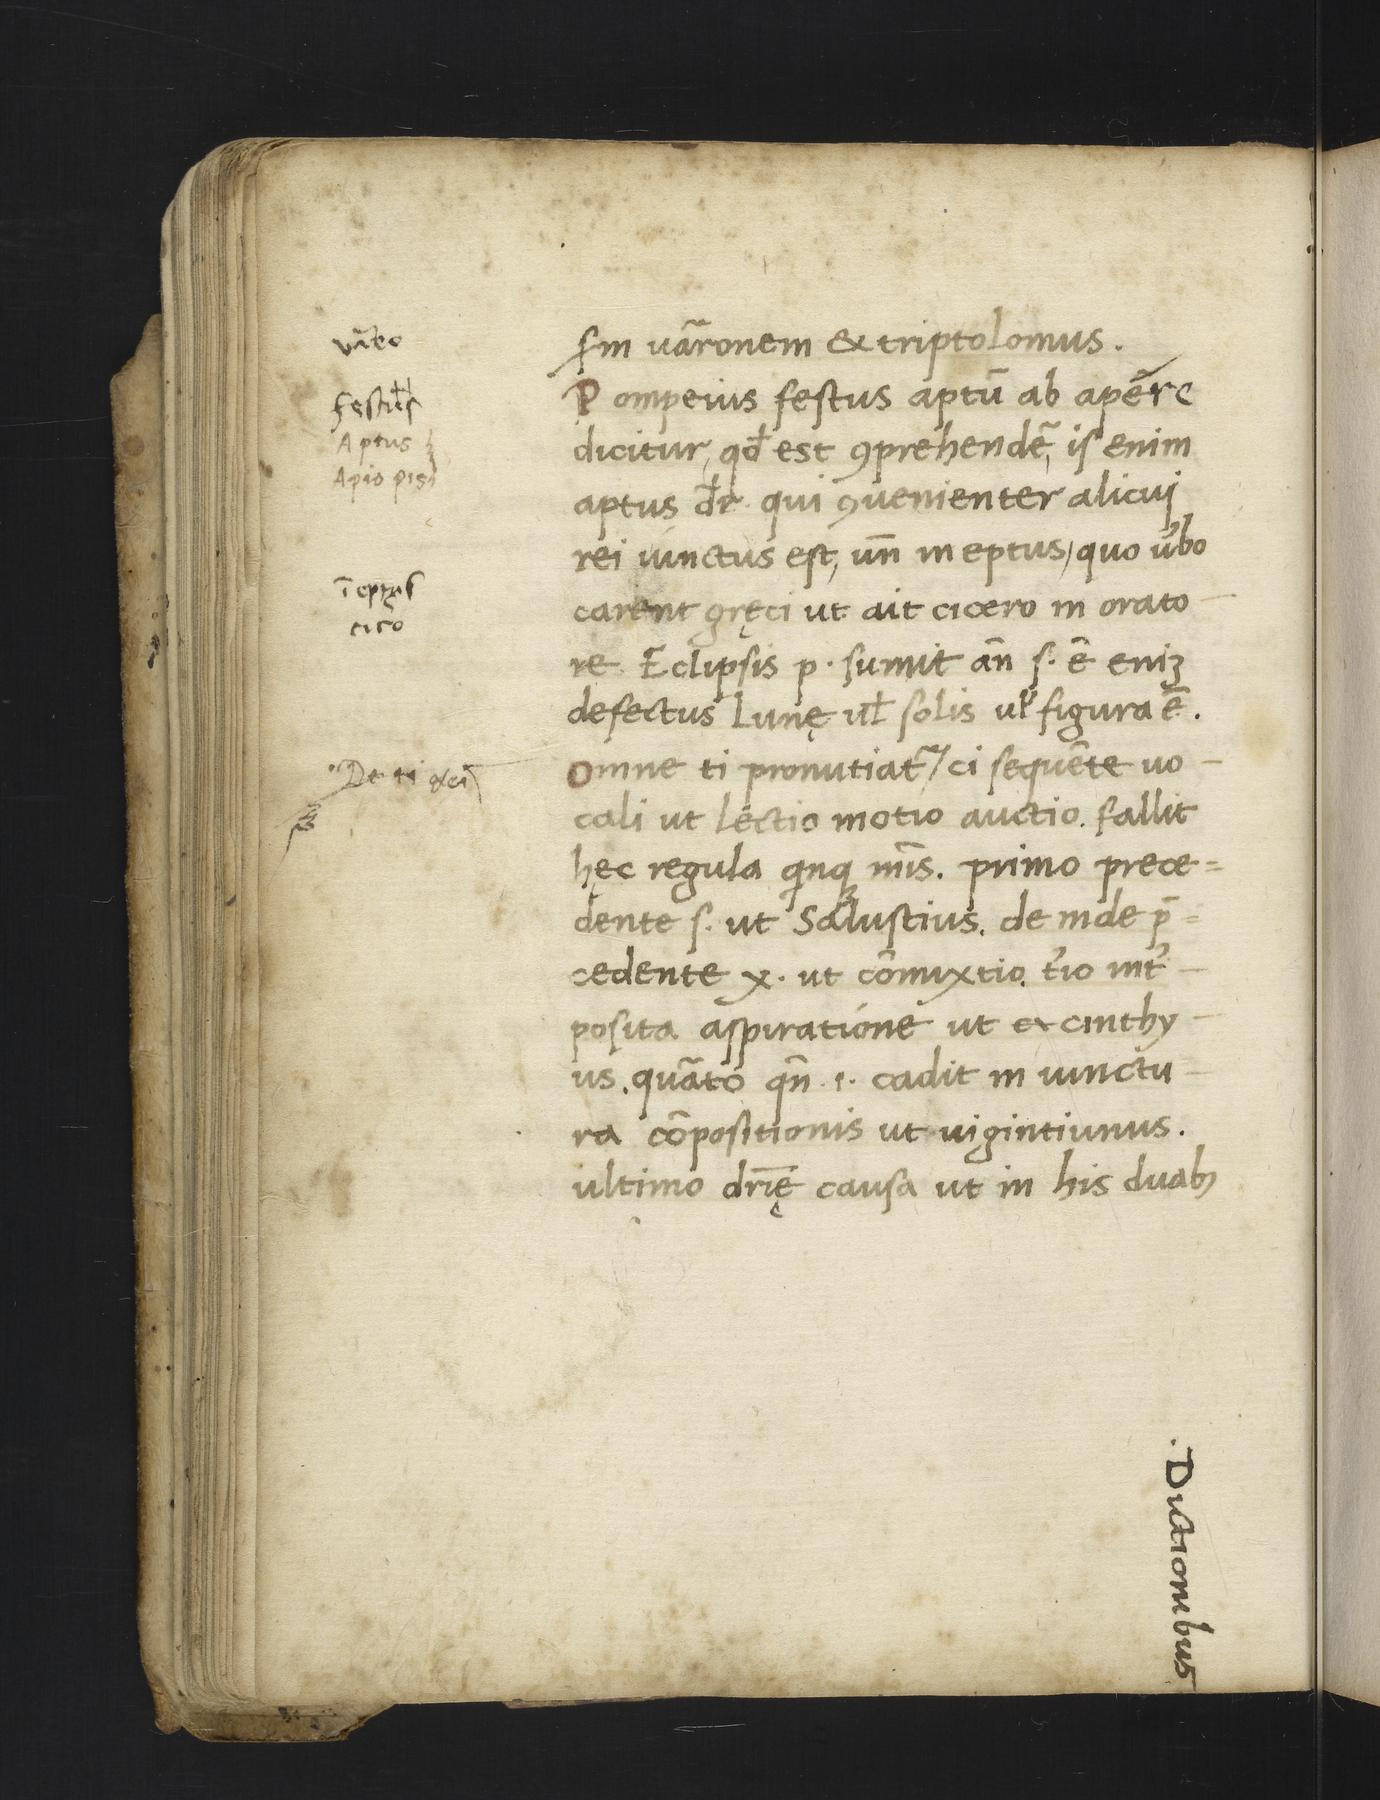 varo
festus
Aptus
Apio pis
īeptus
ciro
De ti & ci
sm uāronem & triptolomus.
Pompeius festus aptū ab apēre
dicitur, qđ est ꝯprehendẽ, is enim
aptus dr̄ qui ꝯuenienter alicuj
rei iunctus est, un̄ ineptus, quo ubo
carent gręci ut ait cicero in orato-
re. Eclipsis p. sumit an̄ s. ē eniꝫ
defectus lunę ul solis ul figura ē.
Omne ti pronutiat̄ / ci sequēte uo-
cali ut lectio motio auctio. fallit
hęc regula qnqꝫ mis. primo prece=
dente s. ut Salustius. de inde p̄=
cedente x. ut cōmixtio. tio int-
posita aspiratione ut corinthy-
us. quāto qn̄ .i. cadit in iunctu-
ra cōpositionis ut uigintiunus.
ultimo drīę causa ut in his duabꝫ
. Dictionibus